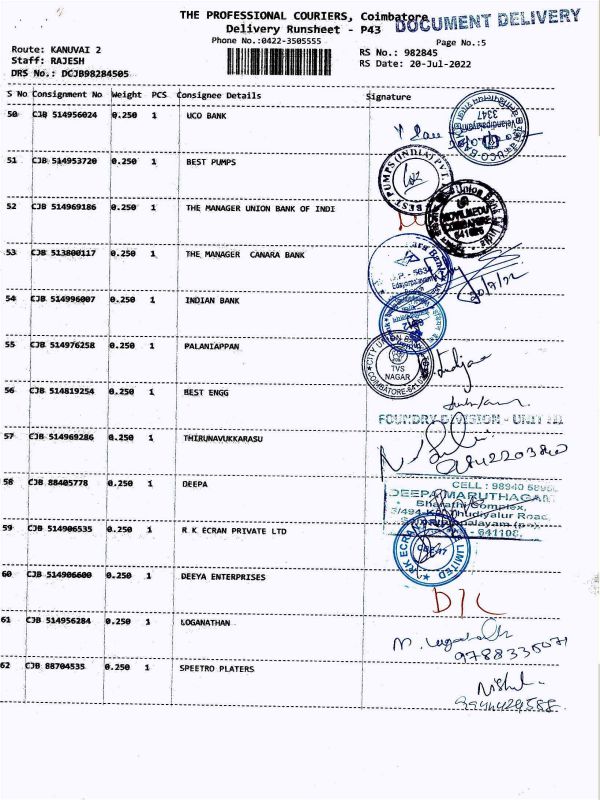 THE PROFESSIONAL COURIERS, Coimbatore
DOCUMENT DELIVERY
Delivery Runsheet - P43
Phone No.:0422-3505555
Page No.:5
Route: KANUVAI 2
RS No.: 982845
Staff: RAJESH
RS Date: 20-Jul-2022
DRS No.: DCJB98284505
S No Consignment No Weight PCS Consignee Details Signature
50 CJB 514956024 0.250 1 UCO BANK
3347
51 CJB 514953720 0.250 1 BEST PUMPS
BEST PUMPS (INDIA) PVT.
52 CJB 514969186 0.250 1 THE MANAGER UNION BANK OF INDI
Union Bank
COIMBATORE
53 CJB 513800117 0.250 1 THE MANAGER CANARA BANK
20/7/22
54 CJB 514996007 0.250 1 INDIAN BANK
55 CJB 514976258 0.250 1 PALANIAPPAN
TVS
NAGAR
COIMBATORE
56 CJB 514819254 0.250 1 BEST ENGG
FOUNDRY DIVISION - UNIT III
57 CJB 514969286 0.250 1 THIRUNAVUKKARASU
58 CJB 88405778 0.250 1 DEEPA
CELL : 98940
DEEPA MARUTHAGAM
Bharathi Complex,
Road,
641108,
59 CJB 514906535 0.250 1 R K ECRAN PRIVATE LTD
RK ECRAN LIMITED
60 CJB 514906600 0.250 1 DEEYA ENTERPRISES
D/L
61 CJB 514956284 0.250 1 LOGANATHAN
62 CJB 88704535 0.250 1 SPEETRO PLATERS